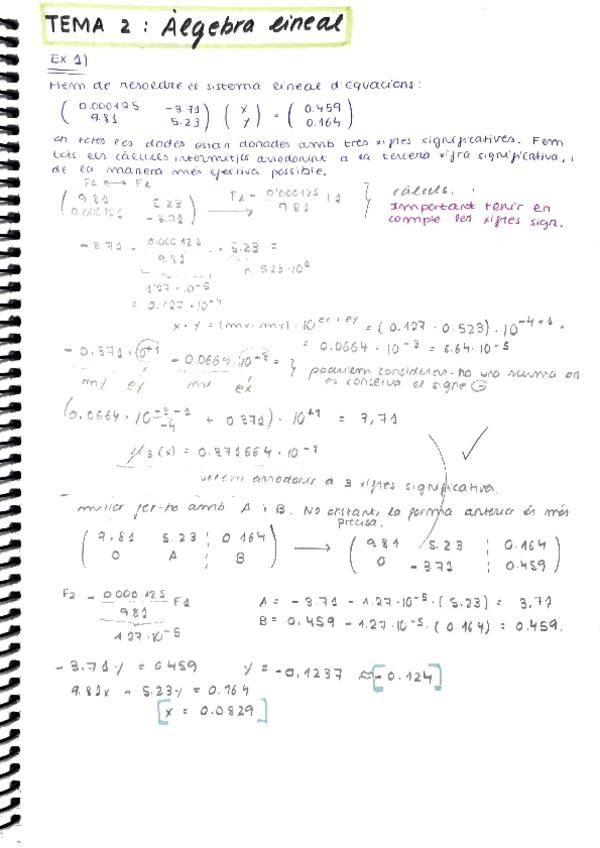 TEMA 2 : Àlgebra lineal
Ex 1)
Hem de resoldre el sistema lineal d'equacions:
( 0.000125 -3.71 ) ( x ) = ( 0.459 )
( 9.81 5.23 ) ( y ) ( 0.164 )
on totes les dades estan donades amb tres xifres significatives. Fem
tots els càlculs intermitjos arrodonint a la tercera xifra significativa, i
de la manera més efectiva possible.
F1 ↔ F2
( 9.81 5.23 ) → F2 - 0.000125 / 9.81 F1 } càlculs.
( 0.000125 -3.71 ) Important tenir en
compte les xifres sign.
-3.71 - 0.000125 / 9.81 · 5.23 =
0.523·10¹
1.27·10⁻⁵
= 0.127·10⁻⁴
x · y = (mx · my) · 10^(ex + ey) = (0.127 · 0.523) · 10⁻⁴⁺¹ =
= 0.0664 · 10⁻³ = 6.64·10⁻⁵
- 0.371·10⁺¹ - 0.0664·10⁻³ = } podríem considerar-ho una suma on
my ey mx ex es conserva el signe ⊖
(0.0664 · 10⁻³⁻¹ + 0.371) · 10⁺¹ = 3,71
-4
fl3 (x) = 0.371664·10⁻¹
arrodonir a 3 xifres significativa
millor fer-ho amb A i B. No obstant, la forma anterior és més
precisa.
( 9.81 5.23 ¦ 0.164 ) → ( 9.81 5.23 ¦ 0.164 )
( 0 A ¦ B ) ( 0 -3.71 ¦ 0.459 )
F2 - 0.000125 / 9.81 F1 A = -3.71 - 1.27·10⁻⁵·(5.23) = 3.71
1.27·10⁻⁵ B = 0.459 - 1.27·10⁻⁵·(0.164) = 0.459.
- 3.71·y = 0.459 y = -0.1237 ≈ [-0.124]
9.81x - 5.23y = 0.164
[x = 0.0829]